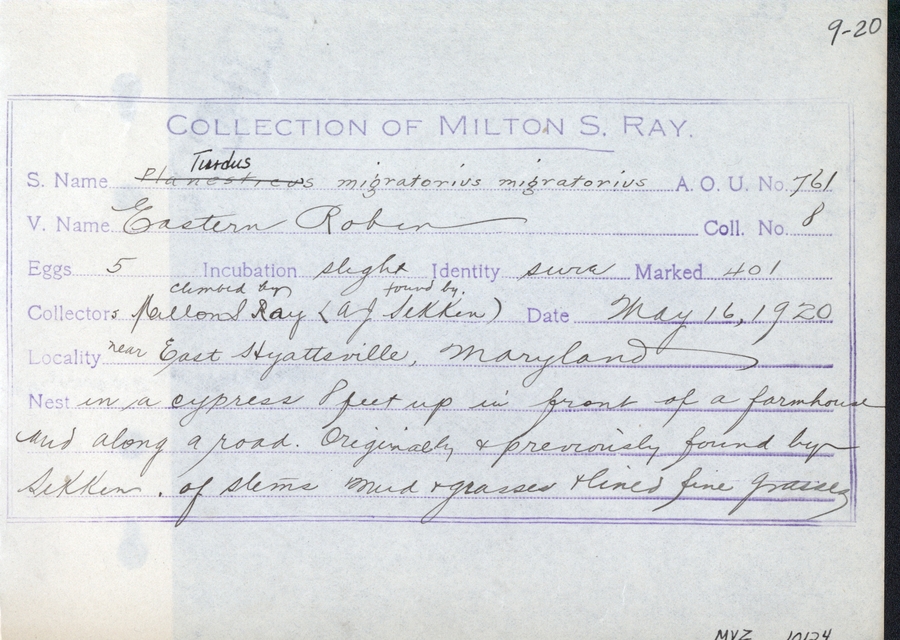 9-20
COLLECTION OF MILTON S. RAY.
Turdus
S. Name Planesticus migratorius migratorius A. O. U. No. 761
V. Name Eastern Robin Coll. No. 8
Eggs 5 Incubation slight Identity sure Marked 401
climbed by found by
Collectors Milton S Ray (A J Sekken) Date May 16, 1920
Locality near East Hyattsville, Maryland
Nest in a cypress 8 feet up in front of a farmhouse
and along a road. Originally & previously found by
Sekken. of stems mud & grasses & lined fine grasses
MVZ 10124